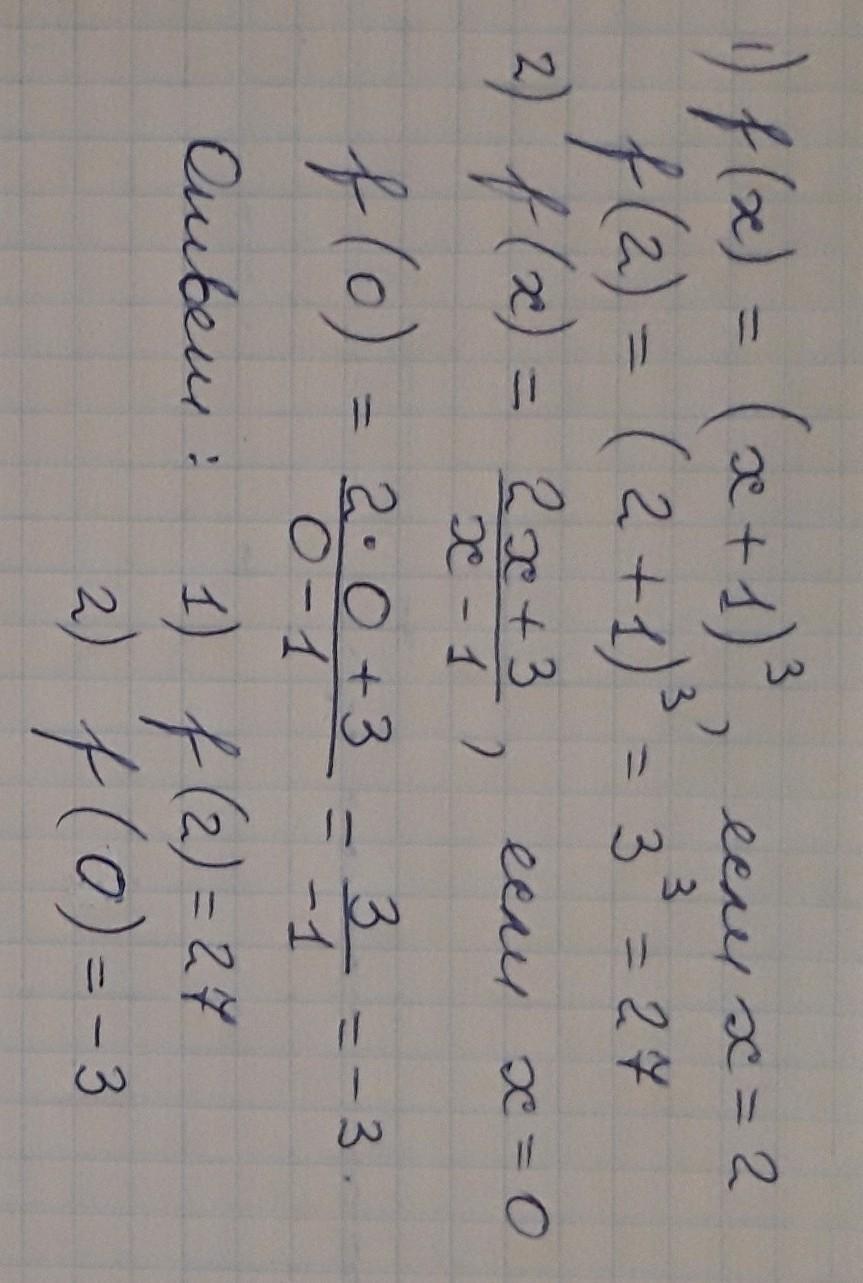 1) f(x) = (x+1)³, если x=2
f(2) = (2+1)³ = 3³ = 27
2) f(x) = (2x+3)/(x-1), если x=0
f(0) = (2·0+3)/(0-1) = 3/-1 = -3.
Ответ: 1) f(2)=27
2) f(0)=-3